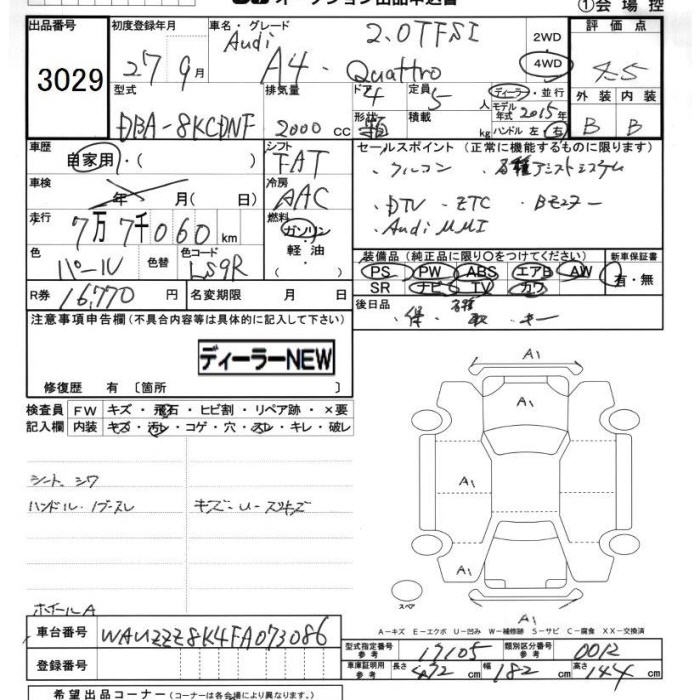 オークション出品申込書
①会場控
出品番号 3029
初度登録年月 27 9月
車名・グレード Audi A4・Quattro 2.0TFSI
2WD
4WD
評価点 4.5
外装 B
内装 B
型式 DBA-8KCDNF
排気量 2000 cc
ドア 4
形状 箱
定員 5 人
積載 kg
ディーラー・並行
モデル年式 2015年
ハンドル 左 右
車歴 自家用・( )
シフト FAT
車検 年 月( 日)
冷房 AAC
走行 7万7千060km
燃料 ガソリン・軽油( )
色 パール
色替
色コード LS9R
R券 16,770 円
名変期限 月 日
セールスポイント(正常に機能するものに限ります)
・フルコン ・各種アシストシステム
・DTV ・ETC ・Bモニター
・Audi MMI
装備品(純正品に限り○をつけてください)
PS PW ABS エアB AW
SR ナビ TV カワ
新車保証書 有・無
後日品
・保 ・各種取 ・キー
注意事項申告欄(不具合内容等は具体的に記入して下さい)
ディーラーNEW
修復歴 有〔箇所 〕
検査員記入欄
FW キズ・飛石・ヒビ割・リペア跡・×要
内装 キズ・汚レ・コゲ・穴・スレ・キレ・破レ
シート シワ
ハンドル・ノブ スレ
キズ・U・スリキズ
ホイールA
A1
A1
A1
A1
A1
スペア
A-キズ E-エクボ U-凹み W-補修跡 S-サビ C-腐食 XX-交換済
車台番号 WAUZZZ8K4FA073086
登録番号
型式指定番号参考 17105
類別区分番号参考 0012
車庫証明用参考 長さ 472 cm 幅 182 cm 高さ 144 cm
希望出品コーナー(コーナーは各会場により異なります。)